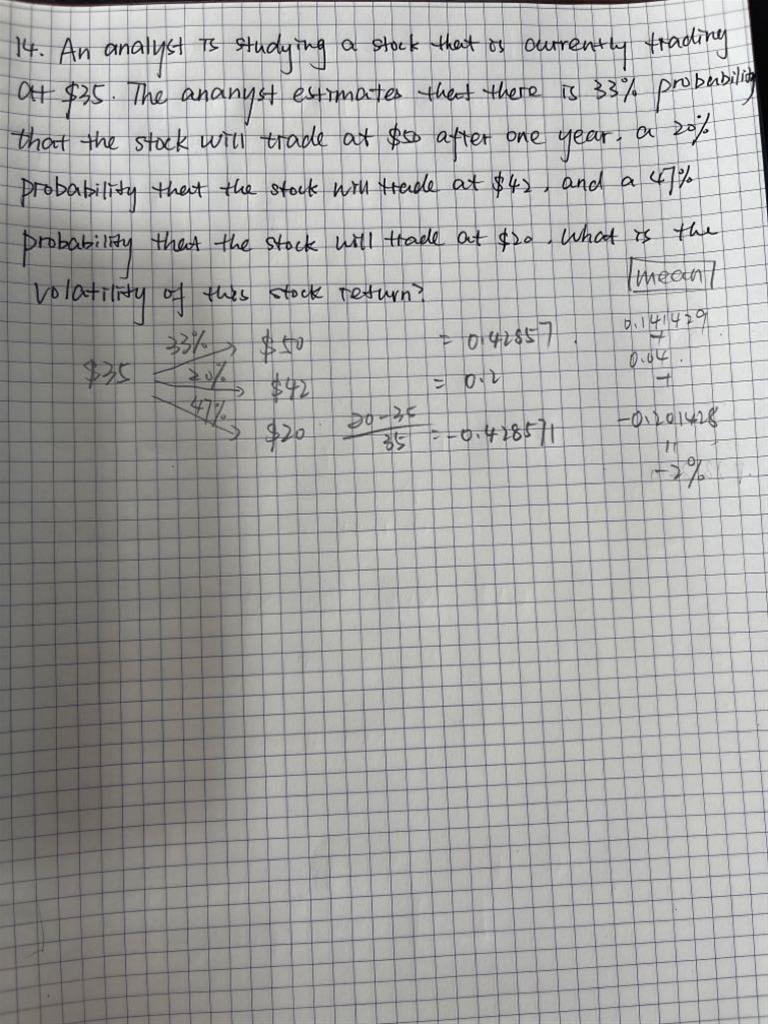 14. An analyst is studying a stock that is currently trading
at $35. The ananyst estimates that there is 33% probability
that the stock will trade at $50 after one year, a 20%
probability that the stock will trade at $42, and a 47%
probability that the stock will trade at $20. What is the
volatility of this stock return?
mean
33% $50 = 0.42857 0.141429
+
$35 20% $42 = 0.2 0.04
+
47% $20 20-35/35 = -0.428571 -0.201428
"
-2%